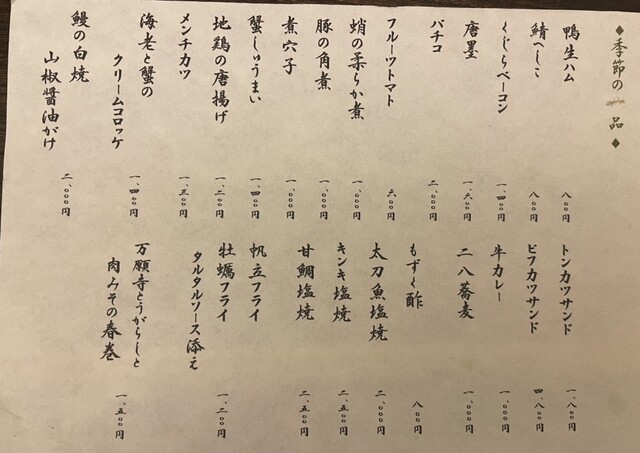 ◆季節の一品◆
鴨生ハム 八〇〇円
鯖へしこ 八〇〇円
くじらベーコン 一、四〇〇円
唐墨 一、六〇〇円
バチコ 二、〇〇〇円
フルーツトマト 六〇〇円
蛸の柔らか煮 一、〇〇〇円
豚の角煮 一、〇〇〇円
煮穴子 一、〇〇〇円
蟹しゅうまい 一、四〇〇円
地鶏の唐揚げ 一、二〇〇円
メンチカツ 一、三〇〇円
海老と蟹の
クリームコロッケ 一、四〇〇円
鰻の白焼
山椒醬油がけ 二、〇〇〇円
トンカツサンド 一、八〇〇円
ビフカツサンド 四、八〇〇円
牛カレー 一、〇〇〇円
二八蕎麦 一、〇〇〇円
もずく酢 八〇〇円
太刀魚塩焼 二、〇〇〇円
キンキ塩焼 二、五〇〇円
甘鯛塩焼 二、五〇〇円
帆立フライ
牡蠣フライ 一、二〇〇円
タルタルソース添え
万願寺とうがらしと
肉みその春巻 一、五〇〇円